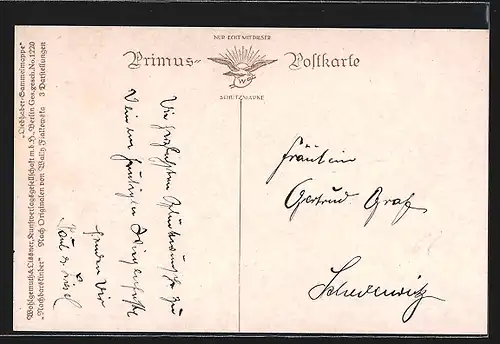 NUR ECHT MIT DIESER
Primus-Postkarte
W&L
SCHUTZMARKE
„Liebhaber-Sammelmappe“
Wohlgemuth & Lissner, Kunstverlagsgesellschaft m.b.H., Berlin Ges. gesch. No. 1220
„Nachbarskinder“ Nach Originalen von Wally Fialkowska 3 Darstellungen
Die herzlichsten Glückwünsche zu
Deinem heutigen
senden Dir
Paul
Fräulein
Gertrud Graf